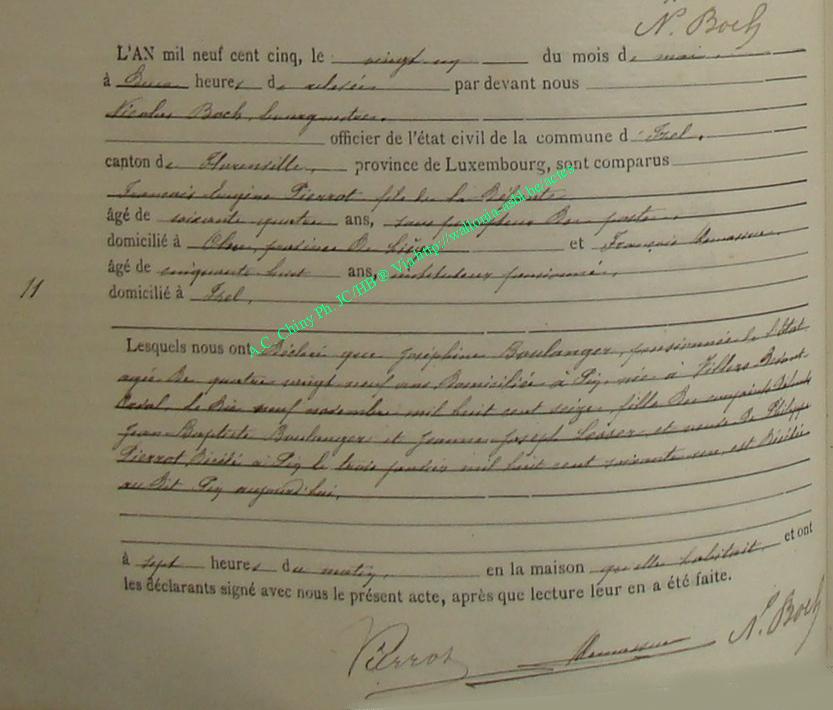 N. Boch
L'AN mil neuf cent cinq, le vingt un du mois de mai.
à Deux heures de relevée par devant nous
Nicolas Boch, bourgmestre.
officier de l'état civil de la commune d'Izel.
canton de Florenville, province de Luxembourg, sont comparus
François Eugène Pierrot fils de la Défunte
âgé de soixante quatre ans, sous percepteur des postes,
domicilié à province de Liège et François
âgé de cinquante huit ans, instituteur pensionné,
11
domicilié à Izel,
Lesquels nous ont Déclaré que Joséphine Boulanger, pensionnée de l'État
agée De quatre vingt neuf ans Domiciliée à Pin, née à Villers Devant
Orval, le Dix neuf novembre mil huit cent seize, fille Des conjoints Défunts
Jean Baptiste Boulanger et Jeanne Joseph et veuve De Philippe
Pierrot Décédé à Pin le trois janvier mil huit cent soixante est Décédée
au Dit Pin aujourd'hui,
à sept heures du matin, en la maison qu'elle habitait, et ont
les déclarants signé avec nous le présent acte, après que lecture leur en a été faite.
Pierrot N. Boch
A.C. Chiny Ph. JC/HB ® Via http://wallonia-asbl.be/actes